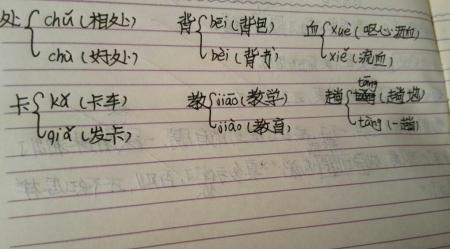 处 chǔ（相处） 背 bēi（背包） 血 xuè（呕心沥血）
chù（好处） bèi（背书） xiě（流血）
卡 kǎ（卡车） 教 jiāo（教学） 趟 tāng（趟地）
qiǎ（发卡） jiào（教育） tàng（一趟）